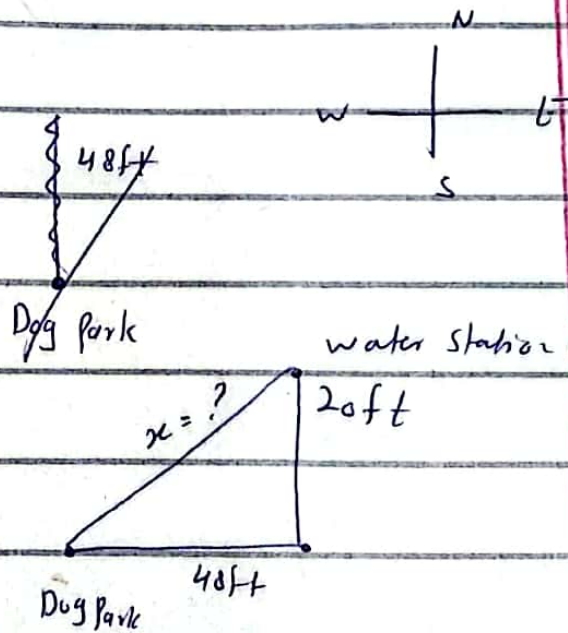 N
W E
S
48ft
Dog Park
water station
x = ?
20ft
48ft
Dog Park